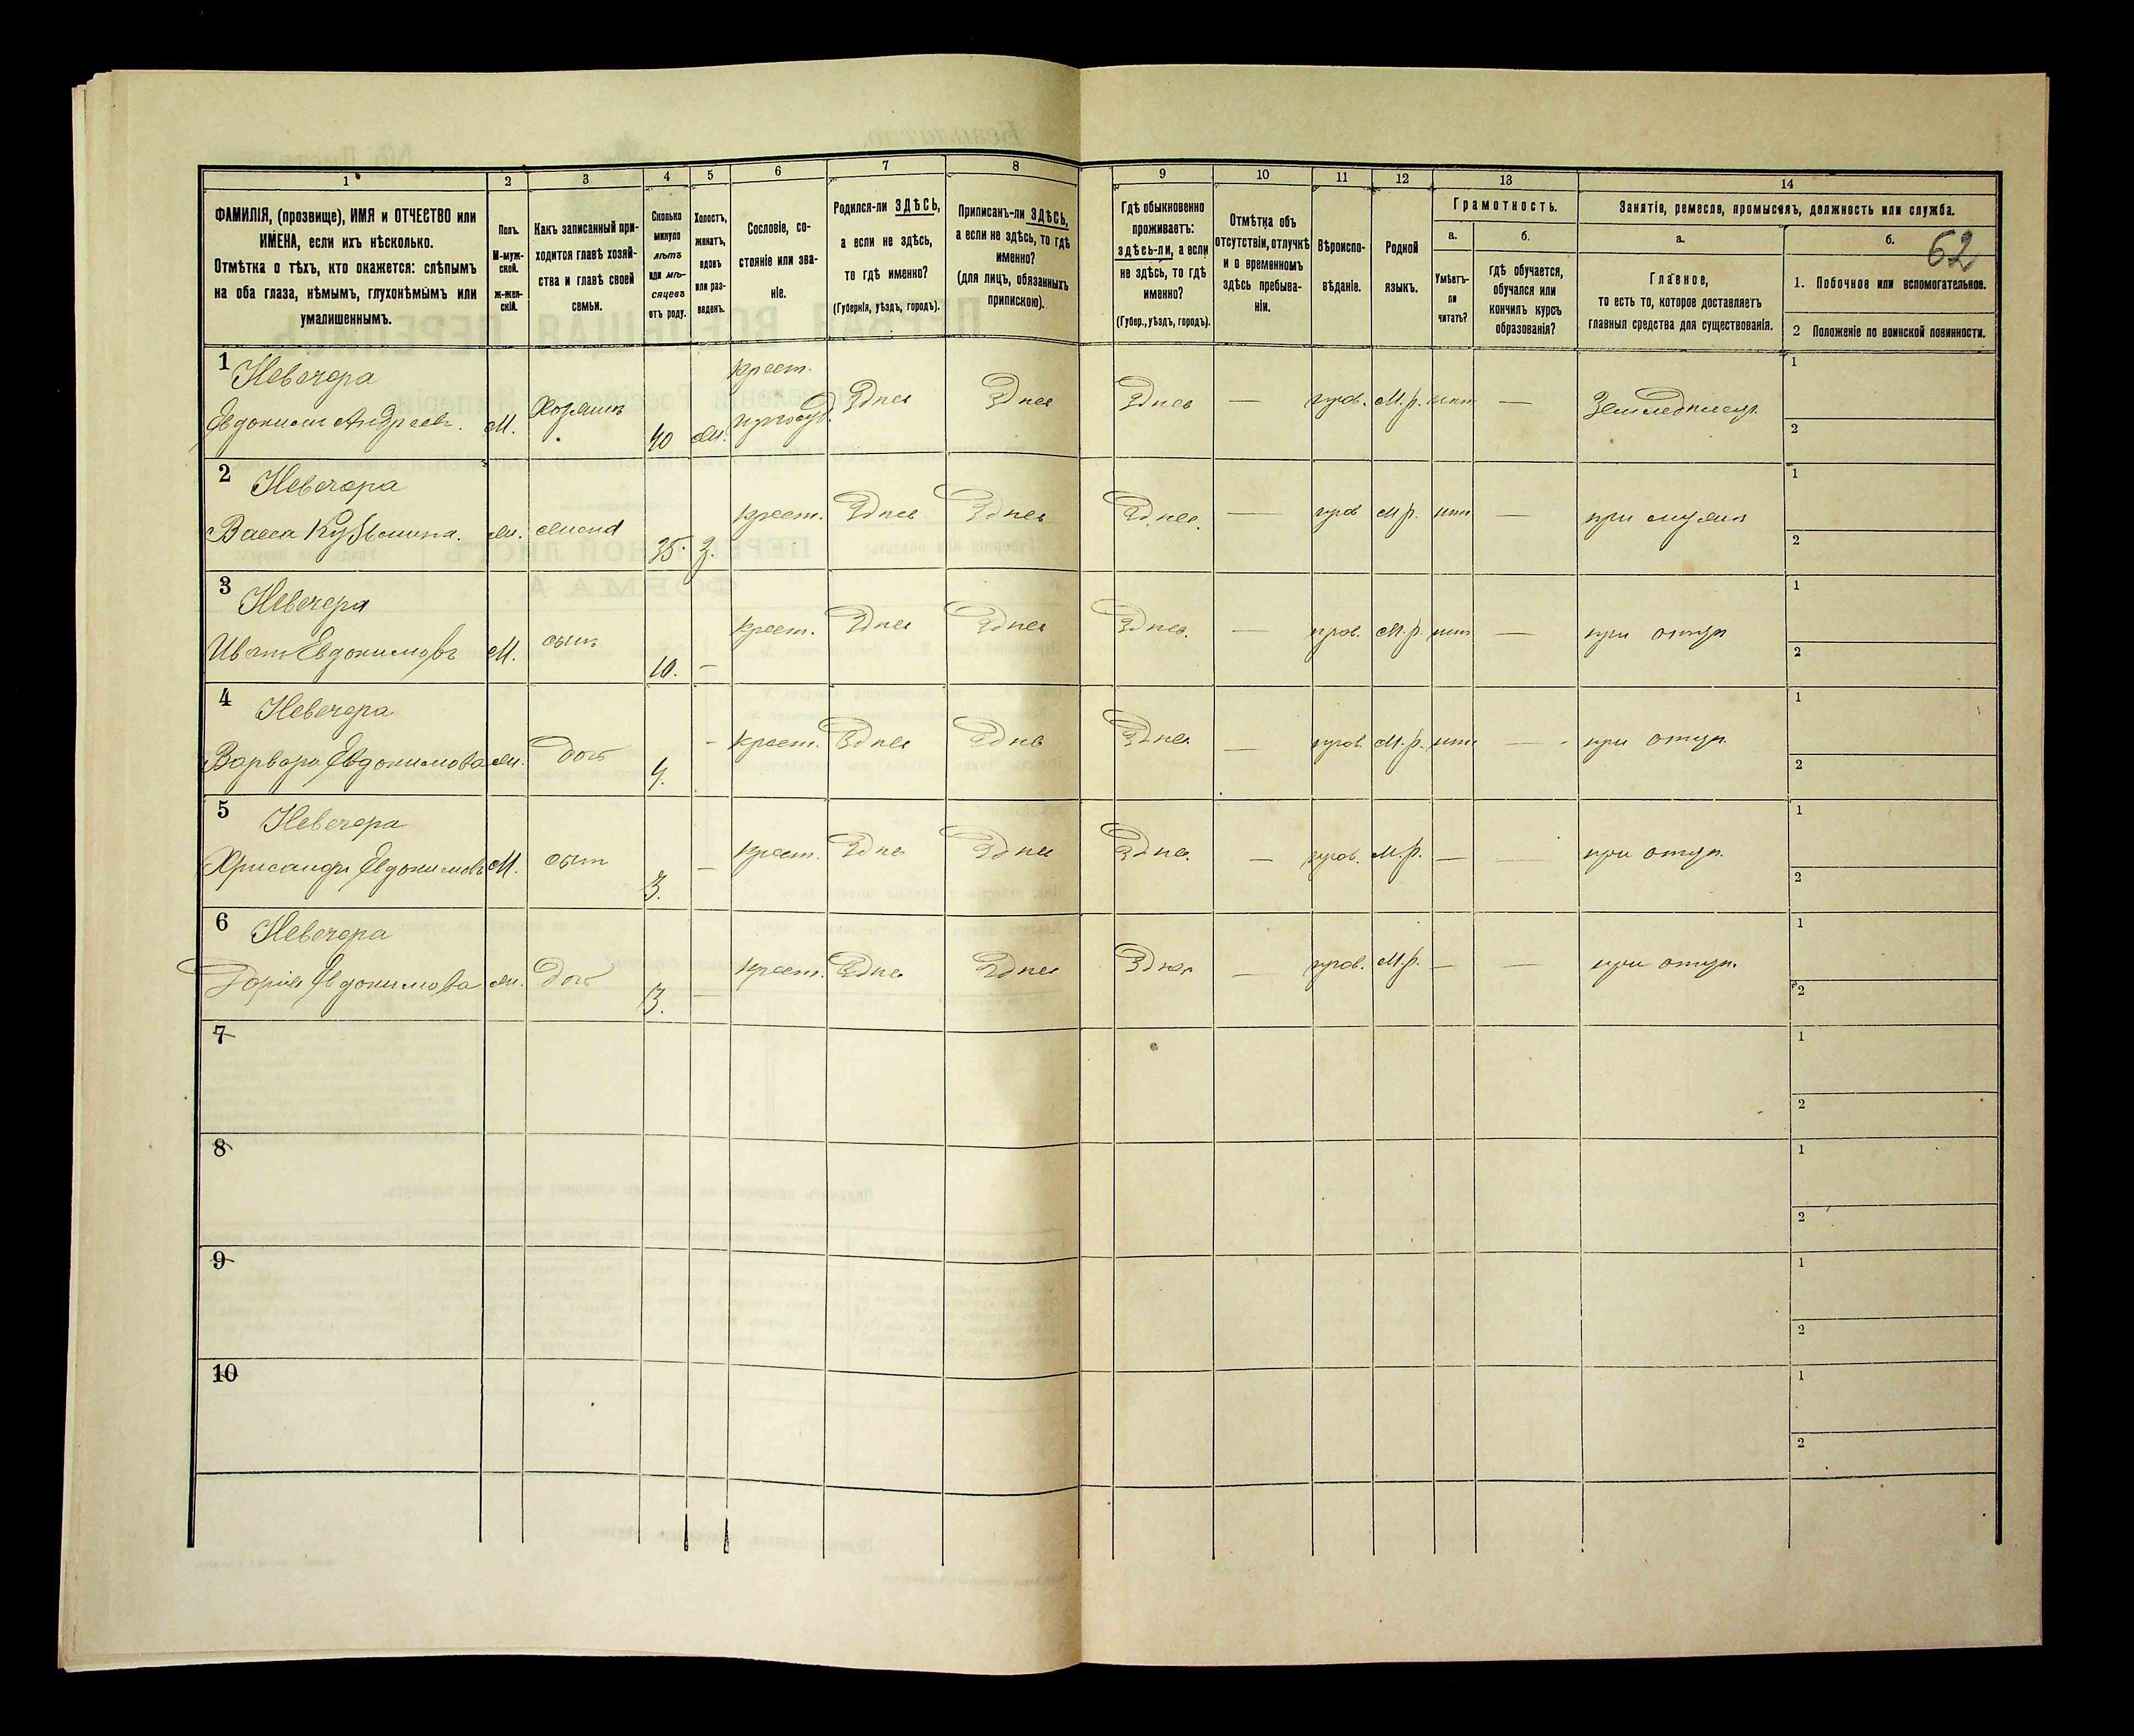 1 2 3 4 5 6 7 8 9 10 11 12 13 14
ФАМИЛІЯ, (прозвище), ИМЯ и ОТЧЕСТВО или
ИМЕНА, если ихъ нѣсколько.
Отмѣтка о тѣхъ, кто окажется: слѣпымъ
на оба глаза, нѣмымъ, глухонѣмымъ или
умалишеннымъ.
Полъ.
М-муж-
ской.
ж-жен-
скій.
Какъ записанный при-
ходится главѣ хозяй-
ства и главѣ своей
семьи.
Сколько
минуло
лѣтъ
или мѣ-
сяцевъ
отъ роду.
Холостъ,
женатъ,
вдовъ
или раз-
веденъ.
Сословіе, со-
стояніе или зва-
ніе.
Родился-ли ЗДѢСЬ,
а если не здѣсь,
то гдѣ именно?
(Губернія, уѣздъ, городъ).
Приписанъ-ли ЗДѢСЬ,
а если не здѣсь, то гдѣ
именно?
(для лицъ, обязанныхъ
припискою).
Гдѣ обыкновенно
проживаетъ:
здѣсь-ли, а если
не здѣсь, то гдѣ
именно?
(Губер., уѣздъ, городъ).
Отмѣтка объ
отсутствіи, отлучкѣ
и о временномъ
здѣсь пребыва-
ніи.
Вѣроиспо-
вѣданіе.
Родной
языкъ.
Грамотность.
а.
Умѣетъ-
ли
читать?
б.
гдѣ обучается,
обучался или
кончилъ курсъ
образованія?
Занятія, ремесла, промыселъ, должность или служба.
а.
Главное,
то есть то, которое доставляетъ
главныя средства для существованія.
б.
62
1. Побочное или вспомогательное.
2 Положеніе по воинской повинности.
1 Невечера крест. 1
Евдокимъ Андреевъ. М. Хозяинъ 40 Здѣсь Здѣсь Здѣсь — прав. М.р. — Земледѣлецъ 2
2 Невечера 1
Васса Кузьмина. жена 35. З. крест. Здѣсь Здѣсь Здѣсь. — прав М р. — при мужѣ 2
3 Невечера 1
Иванъ Евдокимовъ М. сынъ 10. — крест. Здѣсь Здѣсь Здѣсь. — прав. М.р. — при отцѣ 2
4 Невечера 1
Варвара Евдокимова дочь — крест. Здѣсь Здѣсь Здѣсь — прав. М.р. — при отцѣ 2
5 Невечера 1
Хрисанфъ Евдокимовъ М. сынъ 3. — крест. Здѣсь Здѣсь Здѣсь. — прав. М.р. — — при отцѣ. 2
6 Невечера 1
Дарія Евдокимова дочь — крест. Здѣсь Здѣсь Здѣсь — прав. М.р. — — при отцѣ. 2
7 1
2
8 1
2
9 1
2
10 1
2